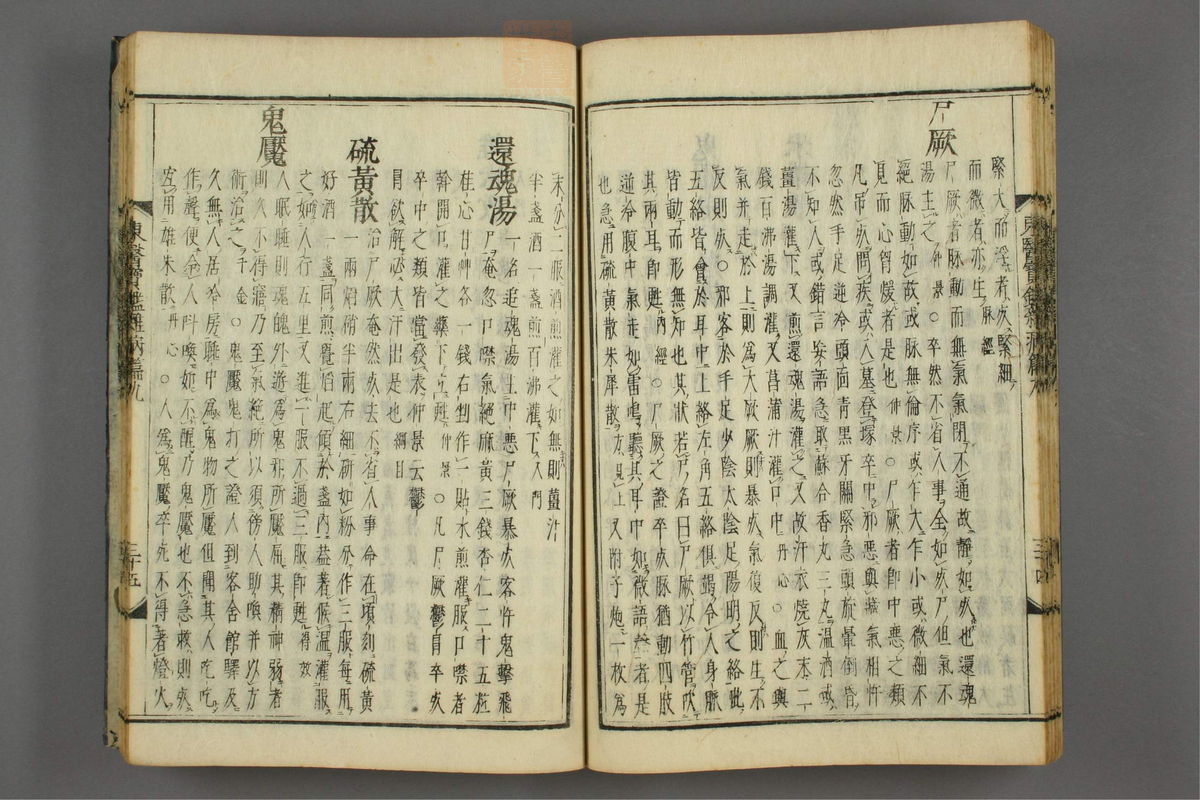 緊大而浮者死緊細
而微者亦生脉經
尸厥
尸厥者脉動而無氣氣閉不通故靜如死也還魂
湯主之仲景○卒然不省人事全如死尸但氣不
絕脉動如故或脉無倫序或乍大乍小或微細不
見而心胷煖者是也仲景○尸厥者即中惡之類
凡吊死問疾或入墓登塚卒中邪惡與藏氣相忤
忽然手足逆冷頭面青黑牙關緊急頭旋暈倒昏
不知人或錯言妄語急取蘇合香丸三丸溫酒或
薑湯灌下又煎還魂湯灌之又故汗衣燒灰末二
錢百沸湯調灌又菖蒲汁灌口中丹心○血之與
氣并走於上則爲大厥厥則暴死氣復反則生不
反則死○邪客於手足少陰太陰足陽明之絡此
五絡皆會於耳中上絡左角五絡俱竭令人身脈
皆動而形無知也其狀若尸名曰尸厥以竹管吹
其兩耳即甦內經○尸厥之證卒死脈猶動四肢
逆冷腹中氣走如雷鳴聽其耳中如微語聲者是
也急用硫黃散朱犀散方見上又附子炮一枚爲
末分二服酒煎灌之如無則薑汁
半盞酒一盞煎百沸灌下入門
還魂湯
一名追魂湯主中惡尸厥暴死客忤鬼擊飛
尸奄忽口噤氣絕麻黃三錢杏仁二十五粒
桂心甘草各一錢右剉作一貼水煎灌服口噤者
斡開口灌藥下立甦仲景○凡尸厥鬱冒卒死
卒中之類皆當發表仲景云鬱
冒欲解必大汗出是也綱目
硫黃散
治尸厥奄然死去不省人事命在頃刻硫黃
一兩焰硝半兩右細研如粉分作三服每用
好酒一盞同煎覺焰起傾於盞內盖著候溫灌服
之如人行五里又進一服不過三服即甦得效
鬼魘
人眠睡則魂魄外遊爲鬼邪所魘屈其精神弱者
則久不得寤乃至氣絕所以須傍人助喚并以方
術治之千金○鬼魘鬼打之證人到客舍館驛及
久無人居冷房睡中爲鬼物所魘但聞其人吃吃
作聲便令人叫喚如不醒乃鬼魘也不急救則死
宜用雄朱散丹心○人爲鬼魘卒死不得著燈火
東醫寶鑑雜病篇九
三十四
東醫寶鑑雜病篇九
三十五